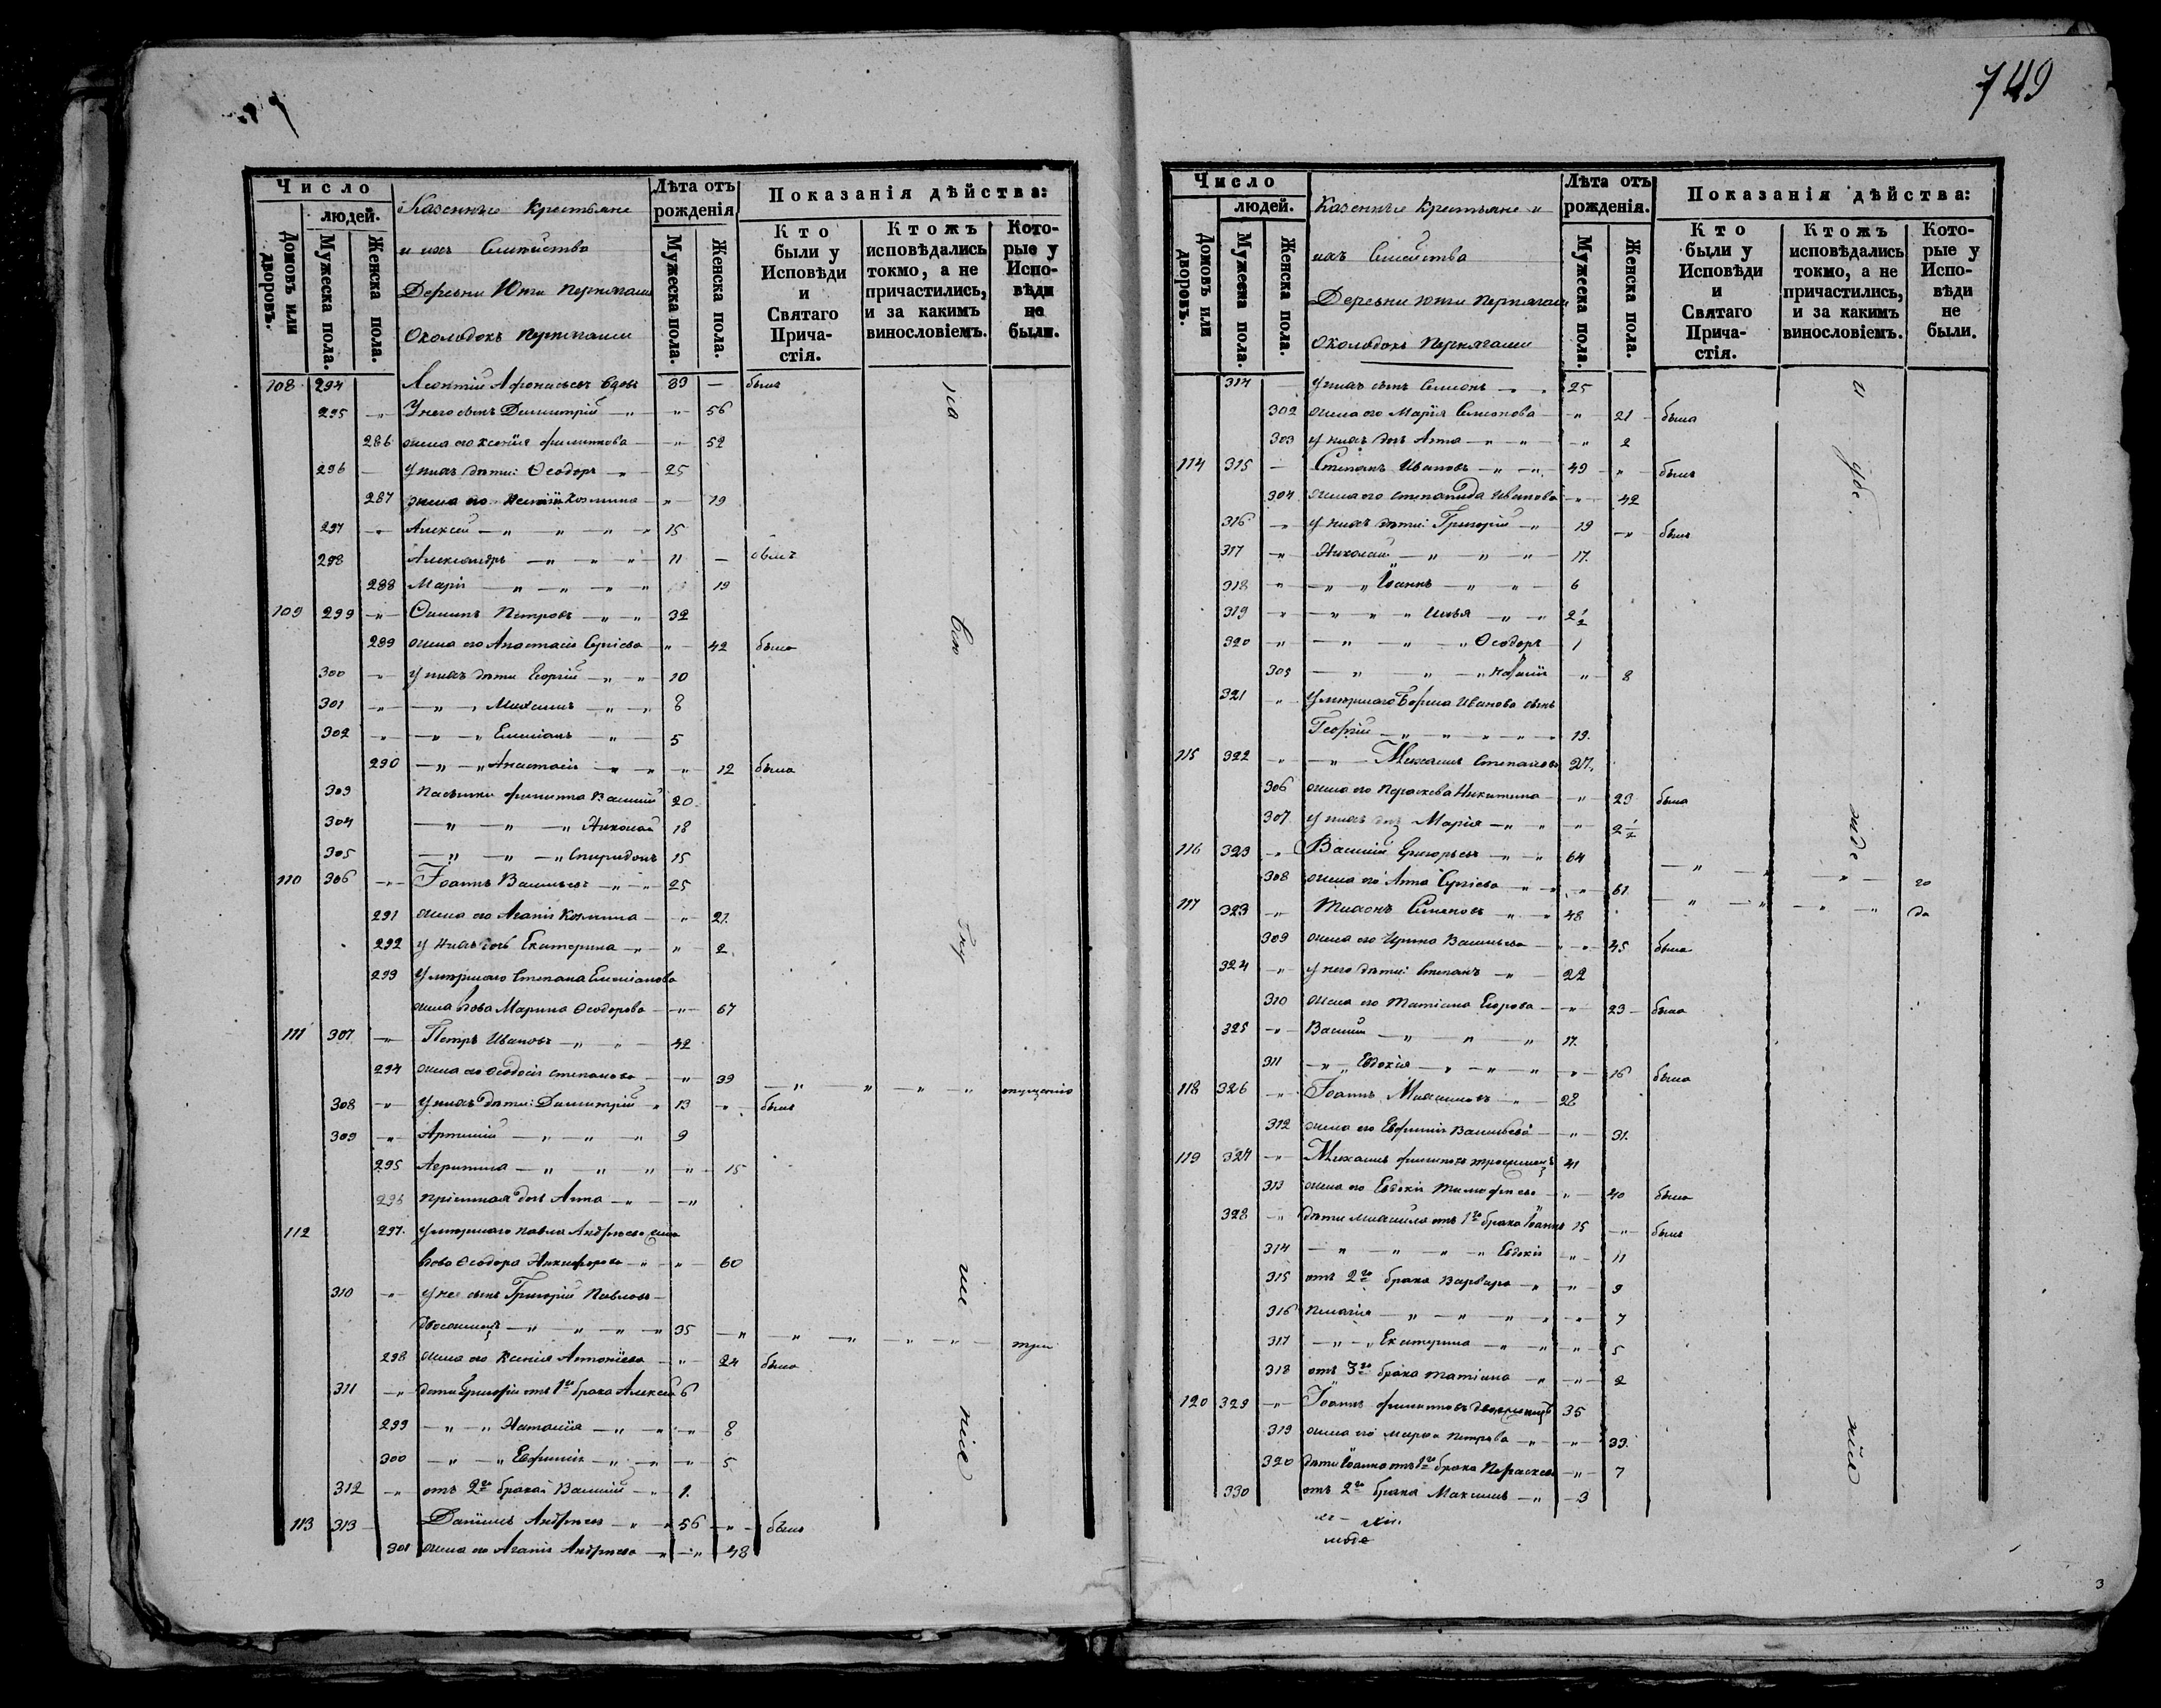 749
Число
людей.
Домовъ или дворовъ.
Мужеска пола.
Женска пола.
Казенные Крестьяне
и ихъ Семейства
Деревни Юнги Пернягаши
Околодокъ Пернягаши
Лѣта отъ рожденія
Мужеска пола.
Женска пола.
Показанія дѣйства:
Кто были у Исповѣди и Святаго Причастія.
Ктожъ исповѣдались токмо, а не причастились, и за какимъ винословіемъ.
Которые у Исповѣди не были.
108 294 Леонтій Афонасьевъ вдовъ 89 — былъ
295 — У него сынъ Димитрій — " — 56
286 жена его Ксенія Филипова — " — 52
296 — у нихъ дѣти: Ѳеодоръ — " 25
287 жена его Козмина — " — 19
297 — Алексѣй — " — " — " 15
298 Александръ — " — " — " 11 — былъ
288 Марія — " — " — " 19
109 299 — Осипъ Петровъ — " — " 32
289 жена его Анастасія Сергіева — " — 42 была
300 — у нихъ дѣти Георгій — " — " 10
301 — " — " Михаилъ — " — " 8
302 — " — " Емиліанъ — " — 5
290 — " — " Анастасія — " — " — 12 была
303 пасынки Филиппа Василій 20
304 — " — " — " Николай 18
305 — " — " — " Спиридонъ 15
110 306 — Іоаннъ Васильевъ — " — " 25
291 жена его Агапія Козмина — " — 21.
292 у нихъ дочь Екатерина — " — " — 2.
293 Умершаго Степана Емеліанова
жена вдова Марина Ѳеодорова — " — 67
111 307 — Петръ Ивановъ — " — " 42
294 жена его Ѳеодосія Степанова — " — 39 — " — " — " — " опущенію
308 — У нихъ дѣти: Димитрій " 13 — былъ
309 — Артемій — " — " — " 9
295 Агрипина — " — " — " — 15
296 пріемная дочь Анна — " — "
112 297. Умершаго Павла Андреева жена
вдова Ѳеодора Никифорова — " — 60
310 — у нея сынъ Григорій Павловъ —
двоеженецъ — " — " — " — " 35 — " — " — " — " — " три
298 жена его Ксенія Антоніева — " — 24 была
311 — дѣти Григорія отъ 1го брака Алексѣй 6
299 — " — " Наталія — " — " — " — 8
300 — " — " Евфимія — " — " — 5
312 — отъ 2го брака Василій — " 1.
113 313 — Даніилъ Андреевъ — " 56 — " — былъ
301 жена его Агапія Андреева — " — 48
Число
людей.
Домовъ или дворовъ.
Мужеска пола.
Женска пола.
Казенные Крестьяне и
ихъ Семейства
Деревни Юнги Пернягаши
Околодокъ Пернягаши
Лѣта отъ рожденія.
Мужеска пола.
Женска пола.
Показанія дѣйства:
Кто были у Исповѣди и Святаго Причастія.
Ктожъ исповѣдались токмо, а не причастились, и за какимъ винословіемъ.
Которые у Исповѣди не были.
314 — у нихъ сынъ Симеонъ — " — 25
302 жена его Марія Симонова — " — 21 — была
303 у нихъ дочь Анна — " — " — " — 2
114 315 — Степанъ Ивановъ — " — " 49 — " — былъ
304 жена его Степанида Иванова — " — 42
316 — у нихъ дѣти: Григорій — " 19 — " — былъ
317 — Николай — " — " — " — 17.
318 — " — " Іоаннъ — " — " — 6
319 — " — " — " Илья — " — " 2½
320 — " — " — " Ѳеодоръ 1
305 — " — " — " — " — 8
321 — Умершаго Бориса Иванова сынъ
Георгій — " — " — " — " 19.
115 322 — " — Михаилъ Степановъ 27.
306 жена его Параскева Никитина — " — 23 была
307 у нихъ дочь Марія — " — " — " 2½
116 323 — Василій Григорьевъ — " — " 64 — " — " — " — го
308 жена его Анна Сергіева — " — " — 61.
117 323 — Тихонъ Сименовъ — " — " 48 — " — " — " — " да
309 жена его Ирина Васильева — " — 45 была
324 — у него дѣти: Степанъ — " — 22
310 жена его Татіана Егорова — " — 23 — была
325 — Василій — " — " — " 17.
311 — " — " Евдокія — " — " — " — 16 была
118 326 — Іоаннъ Михаиловъ — " — 28
312 жена его Евфимія Васильева — " — 31.
119 327 — Михаилъ Филиповъ троеженецъ 41
313 жена его Евдокія Тимофѣева — " — 40 была
328 — дѣти Михаила отъ 1го брака Іоаннъ 15 — " — былъ
314 — " — " — " — " Евдокія — " — 11
315 отъ 2го брака Варвара — " — " — 9
316 Пелагія — " — " — " — " — 7
317 — " — " Екатерина — " — " — 5
318 отъ 3го брака Татіана — " — " — 2
120 329 — Іоаннъ Филиповъ двоеженецъ 35
319 жена его Марѳа Петрова — " — " — 33.
320 дѣти Іоанна отъ 1го брака Параскева — " — 7
330 отъ 2го брака Максимъ — " — 3
3